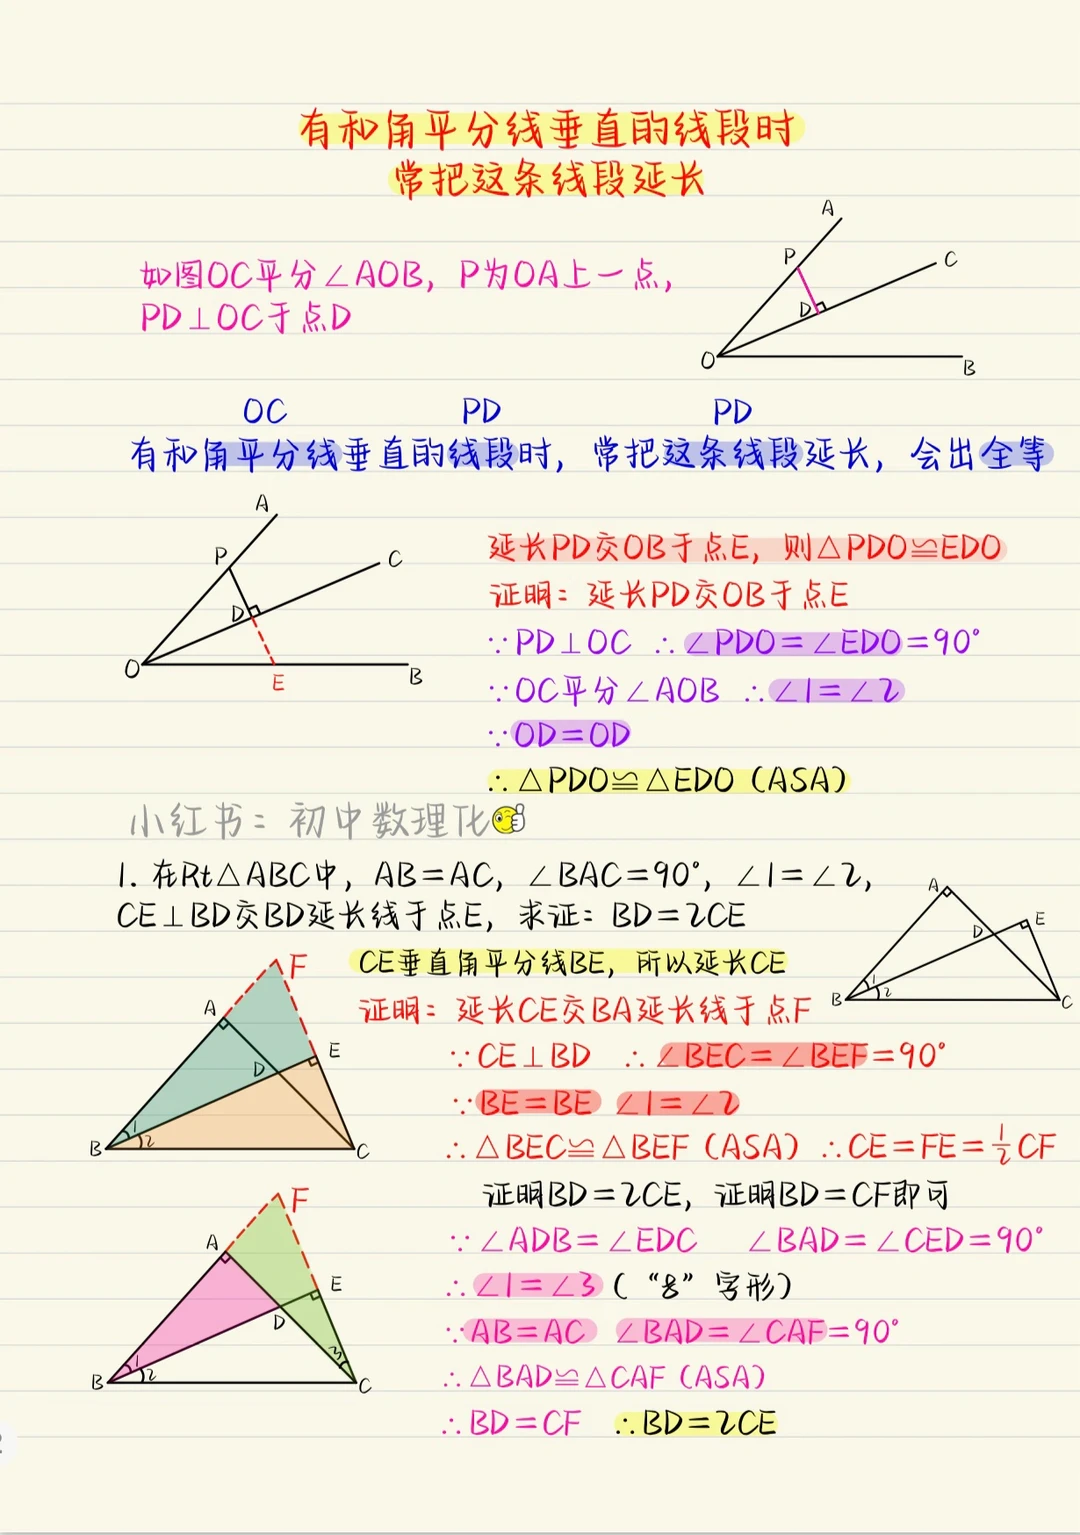 有和角平分线垂直的线段时
常把这条线段延长
A
P
C
D
O
B
如图OC平分∠AOB，P为OA上一点，
PD⊥OC于点D
OC PD PD
有和角平分线垂直的线段时，常把这条线段延长，会出全等
A
P
C
D
O
E
B
延长PD交OB于点E，则△PDO≌EDO
证明：延长PD交OB于点E
∵PD⊥OC ∴∠PDO=∠EDO=90°
∵OC平分∠AOB ∴∠1=∠2
∵OD=OD
∴△PDO≌△EDO（ASA）
小红书：初中数理化
1. 在Rt△ABC中，AB=AC，∠BAC=90°，∠1=∠2，
CE⊥BD交BD延长线于点E，求证：BD=2CE
A
E
D
1
2
B
C
CE垂直角平分线BE，所以延长CE
证明：延长CE交BA延长线于点F
F
A
E
D
1
2
B
C
∵CE⊥BD ∴∠BEC=∠BEF=90°
∵BE=BE ∠1=∠2
∴△BEC≌△BEF（ASA）∴CE=FE=1/2CF
证明BD=2CE，证明BD=CF即可
F
A
E
D
1
2
3
B
C
∵∠ADB=∠EDC ∠BAD=∠CED=90°
∴∠1=∠3（“8”字形）
∵AB=AC ∠BAD=∠CAF=90°
∴△BAD≌△CAF（ASA）
∴BD=CF ∴BD=2CE
2